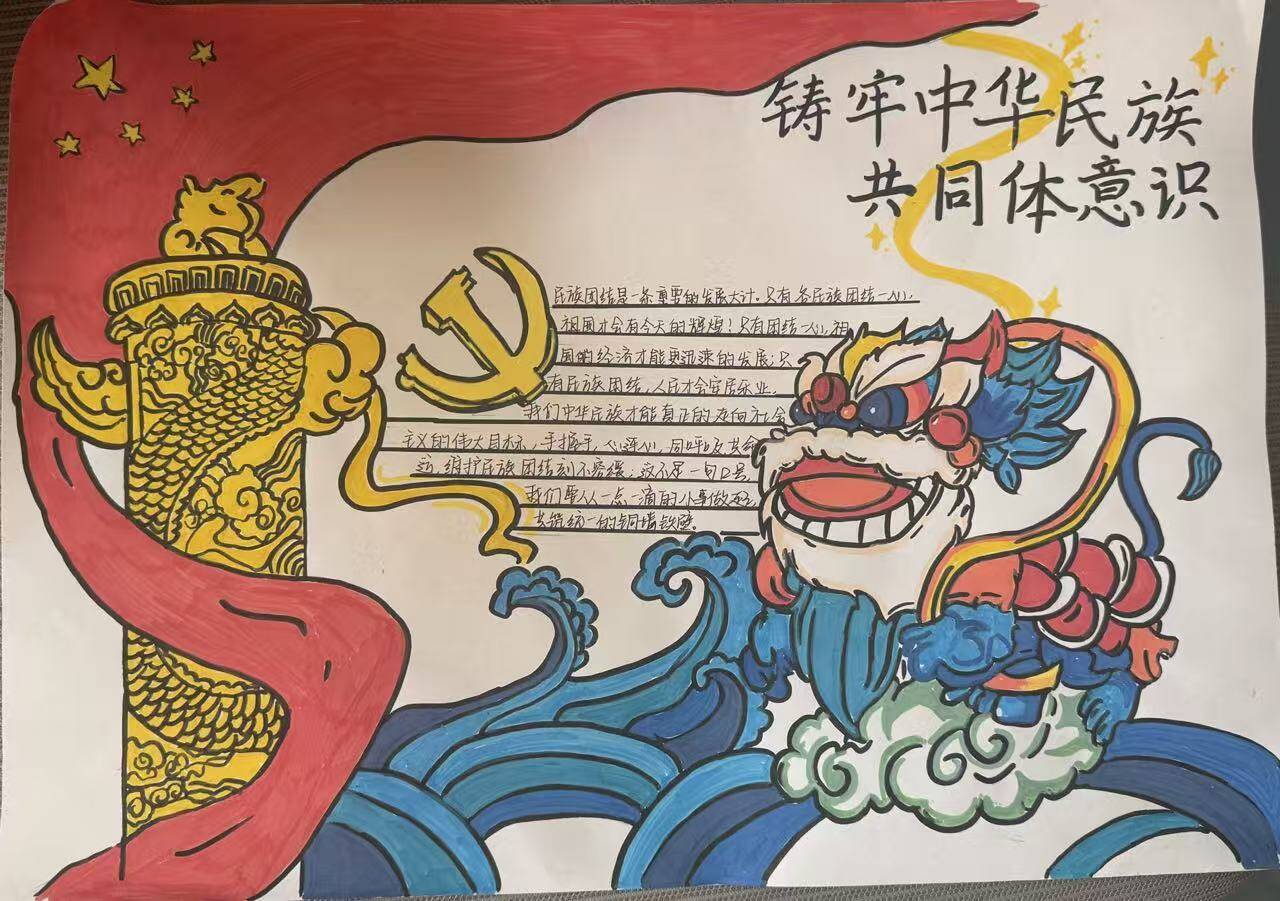 铸牢中华民族
共同体意识
民族团结是一条重要的发展大计。只有各民族团结一心，
祖国才会有今天的辉煌！只有团结一心，祖
国的经济才能更迅速的发展；只
有民族团结，人民才会安居乐业，
我们中华民族才能真正的走向社会
主义的伟大目标，手握手，心连心，同呼吸共命
运，维护民族团结刻不容缓；这不是一句口号，
我们要从一点一滴的小事做起，
共筑统一的铜墙铁壁。